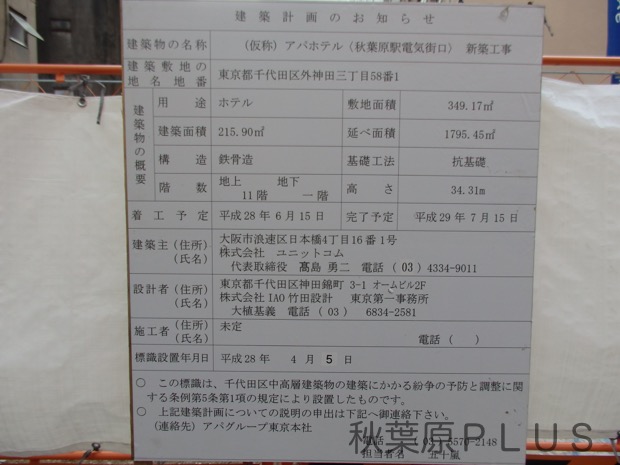 建築計画のお知らせ
建築物の名称 (仮称) アパホテル〈秋葉原駅電気街口〉 新築工事
建築敷地の地名地番 東京都千代田区外神田三丁目58番1
建築物の概要
用途 ホテル 敷地面積 349.17㎡
建築面積 215.90㎡ 延べ面積 1795.45㎡
構造 鉄骨造 基礎工法 杭基礎
階数 地上 11階 地下 一階 高さ 34.31m
着工予定 平成28年6月15日 完了予定 平成29年7月15日
建築主(住所)(氏名) 大阪市浪速区日本橋4丁目16番1号
株式会社 ユニットコム
代表取締役 髙島 勇二 電話 (03) 4334-9011
設計者(住所)(氏名) 東京都千代田区神田錦町 3-1 オームビル2F
株式会社IAO竹田設計 東京第一事務所
大植基義 電話 (03) 6834-2581
施工者(住所)(氏名) 未定
電話 ( )
標識設置年月日 平成28年 4月 5日
○ この標識は、千代田区中高層建築物の建築にかかる紛争の予防と調整に関
する条例第5条第1項の規定により設置したものです。
○ 上記建築計画についての説明の申出は下記へ御連絡下さい。
(連絡先) アパグループ東京本社
電話 (03) 5570-2148
担当者名 五十嵐
秋葉原PLUS